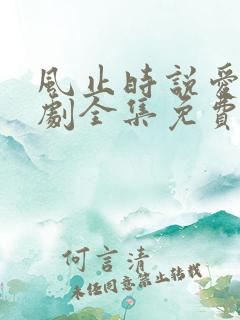 風止時說愛
劇全集免費
何言清
未經同意禁止轉載